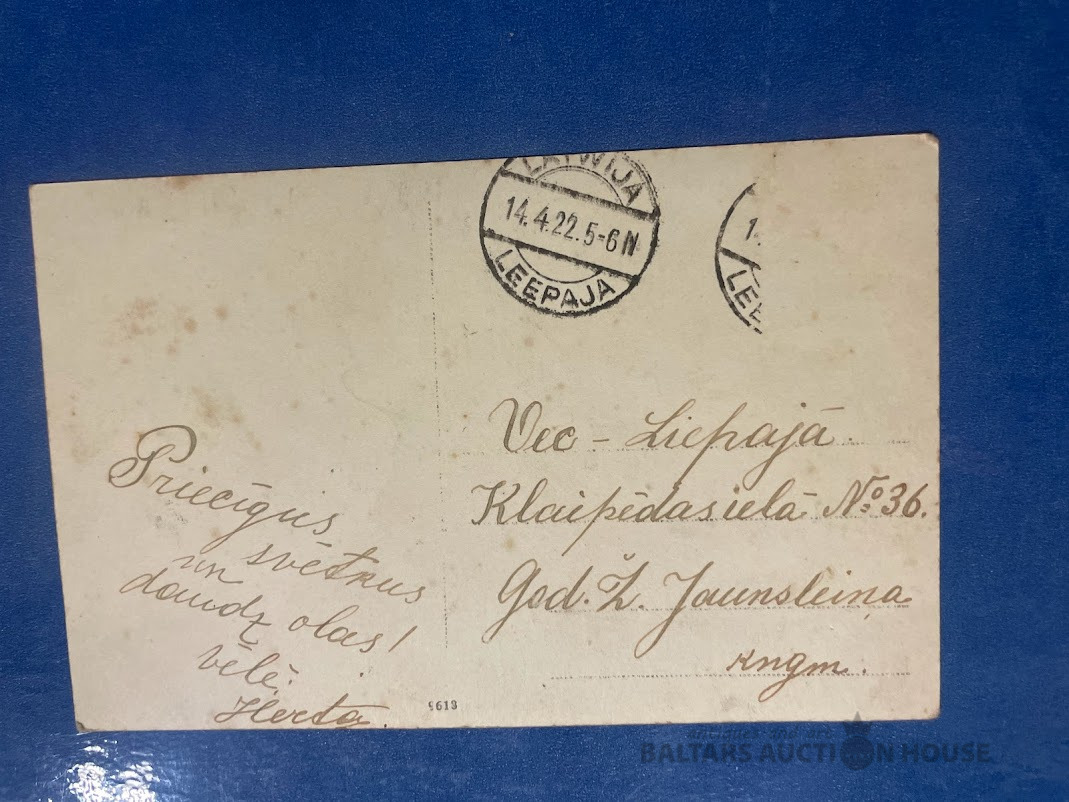 LATWIJA
14.4.22.5-6 N
LEEPAJA
1
LEE
Vec - Liepajā.
Klaipēdasielā No 36.
God. Ž. Jaunsleiņa
kngm.
Priecīgus
svētkus
un
daudz olas!
vēlē:
Herta.
9613
BALTAHS AUCTION HOUSE